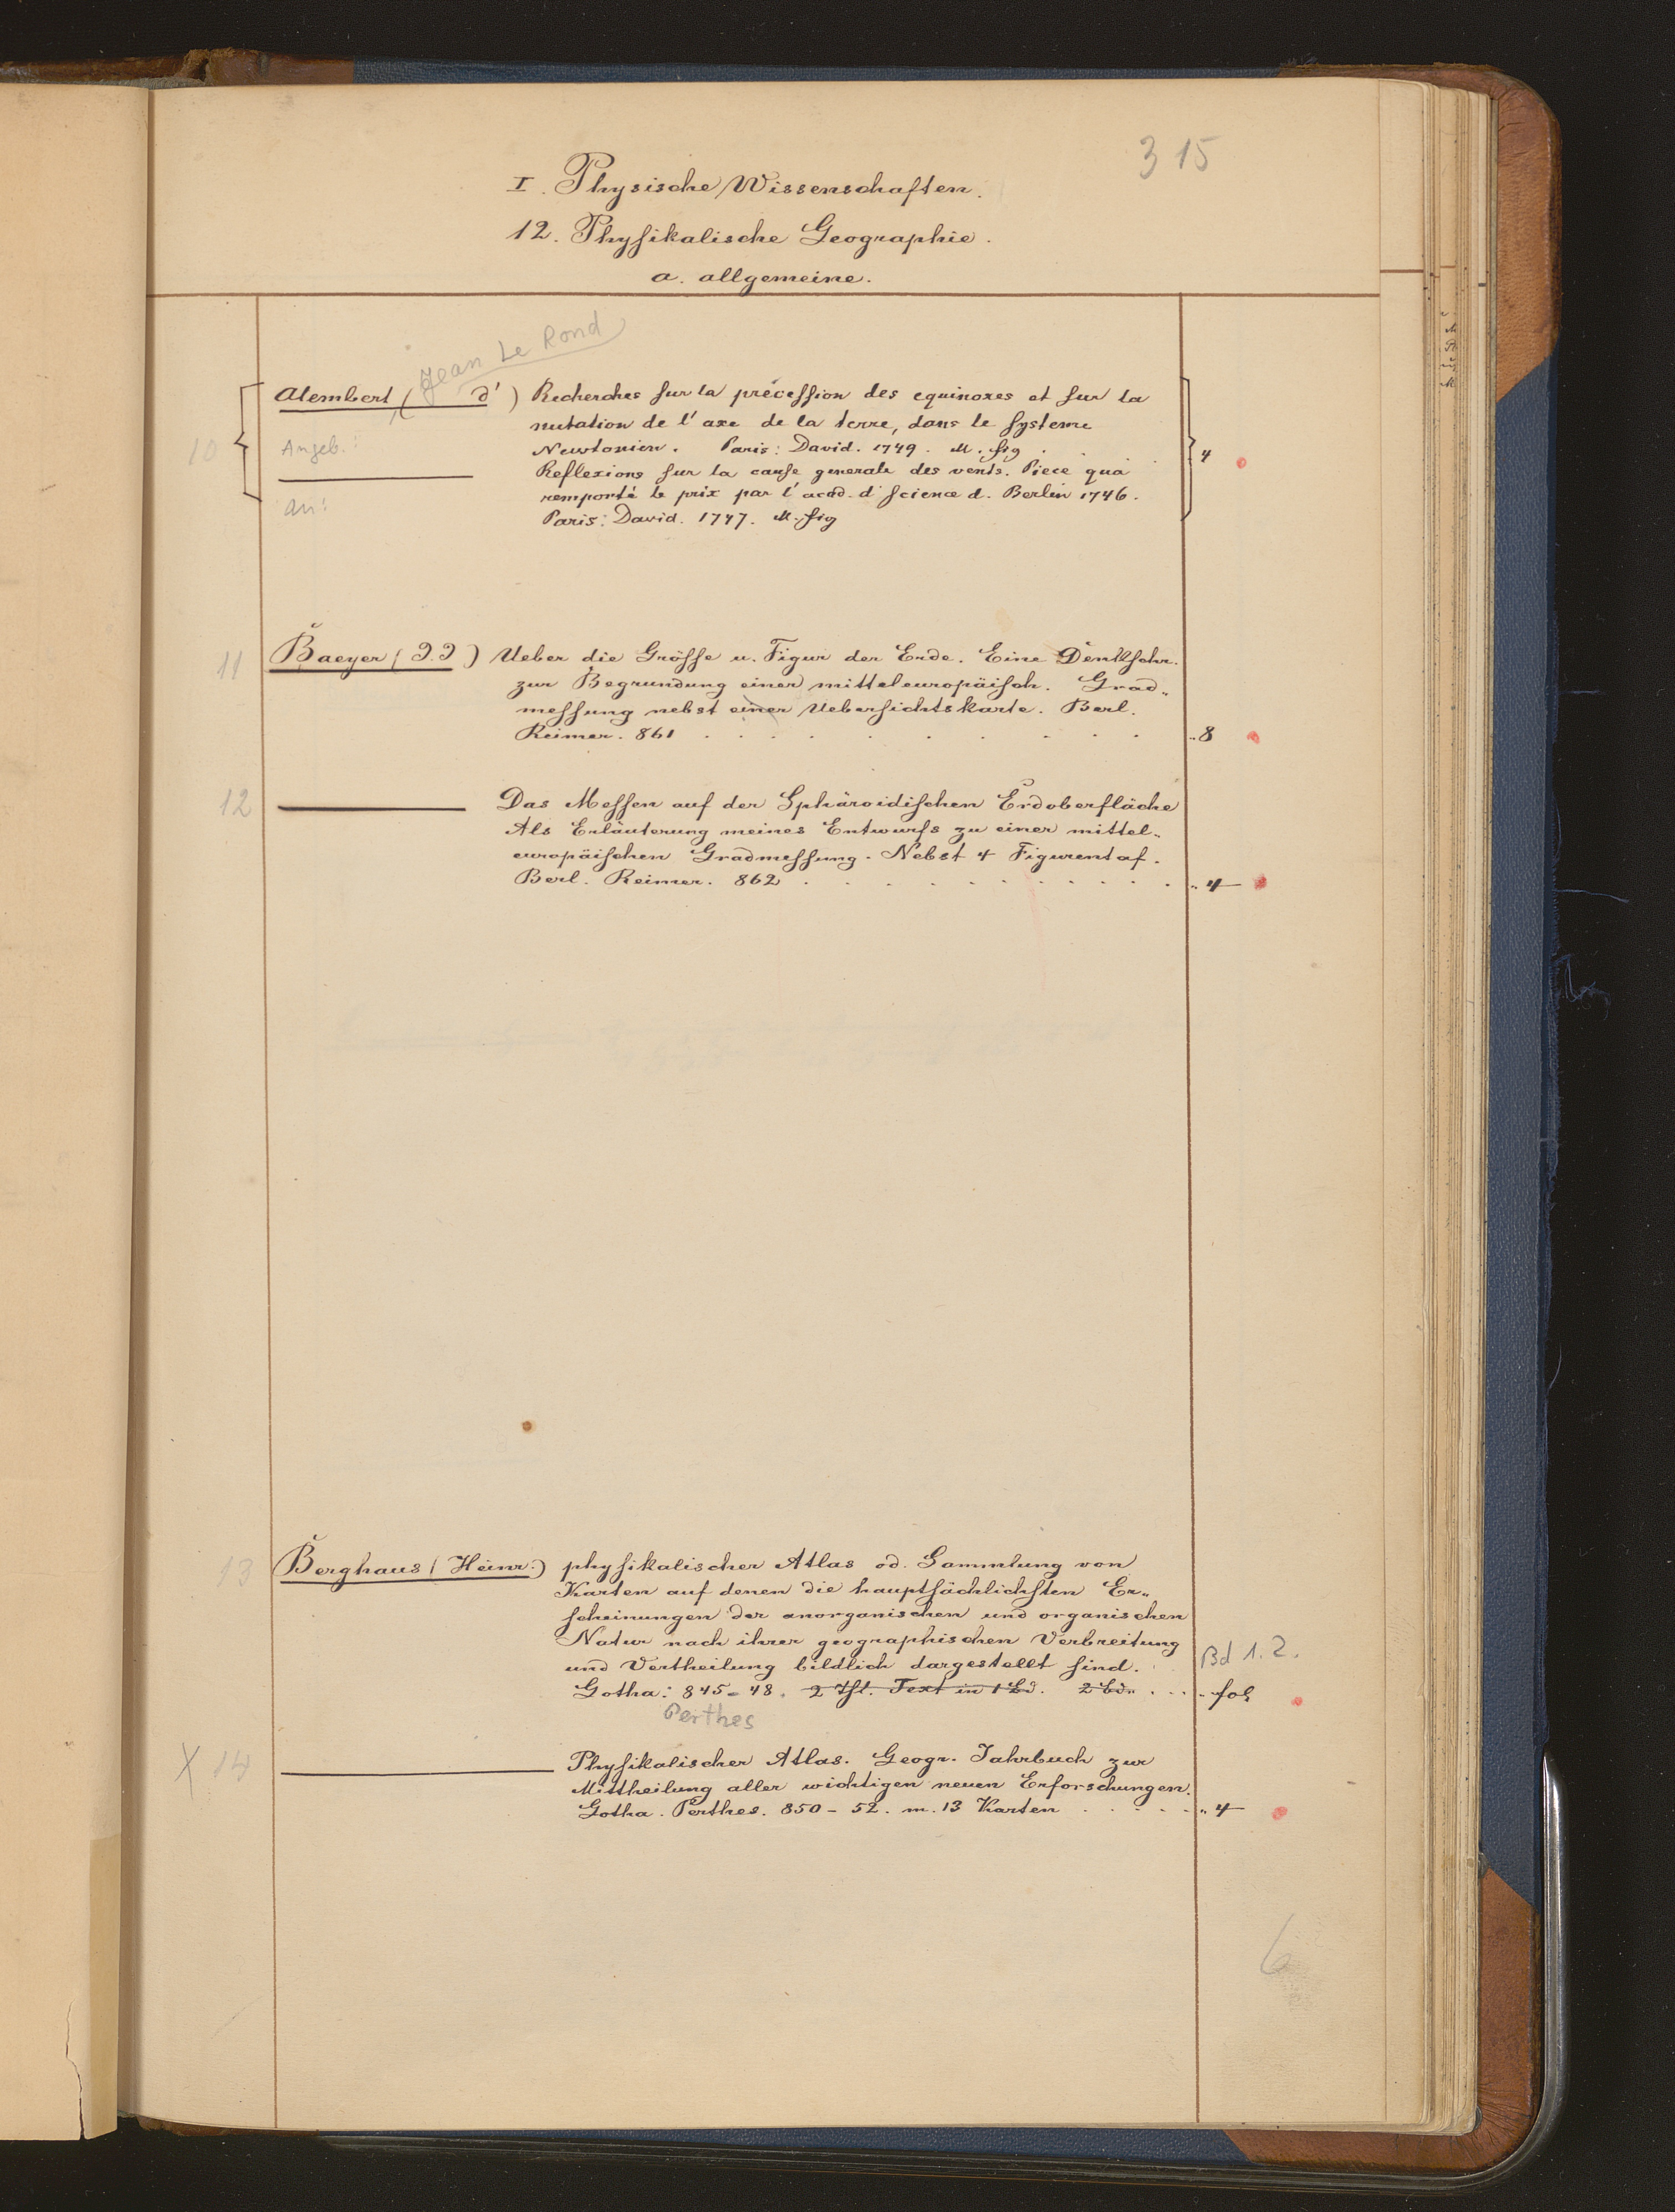 315
I. Physische Wissenschaften.
12. Physikalische Geographie.
a. allgemeine.
Jean Le Rond
10
Alembert ( d') Recherches sur la précession des equinoxes et sur la
nutation de l'axe de la terre, dans le systeme
Angeb.:
Newtonien. Paris: David. 1749. M. fig . . .
4
Reflexions sur la cause generale des vents. Piece qua
remporté le prix par l'acad. d science d. Berlin 1746.
An:
Paris: David. 1747. M. fig
11
Baeyer (J.J) Ueber die Grösse u. Figur der Erde. Eine Denkschr.
zur Begrundung einer mitteleuropäisch. Grad„
messung nebst einer Uebersichtskarte. Berl.
Reimer. 861 . . . . . . . . . „8
12
Das Messen auf der Sphäroidischen Erdoberfläche
Als Erläuterung meines Entwurfs zu einer mittel„
europäischen Gradmessung. Nebst 4 Figurentaf.
Berl. Reimer. 862 . . . . . . . . . „4
13
Berghaus (Heinr.) physikalischer Atlas od. Sammlung von
Karten auf denen die hauptsächlichsten Er„
scheinungen der anorganischen und organischen
Natur nach ihrer geographischen Verbreitung
und Vertheilung bildlich dargestellt sind. Bd 1. 2.
Gotha: 845-48. 2 Thl. Text in 1 Bd. 2 Bde . . . . fol
Perthes
X 14
Physikalischer Atlas. Geogr. Jahrbuch zur
Mittheilung aller wichtigen neuen Erforschungen.
Gotha. Perthes. 850-52. m. 13 Karten . . . . . „4
6